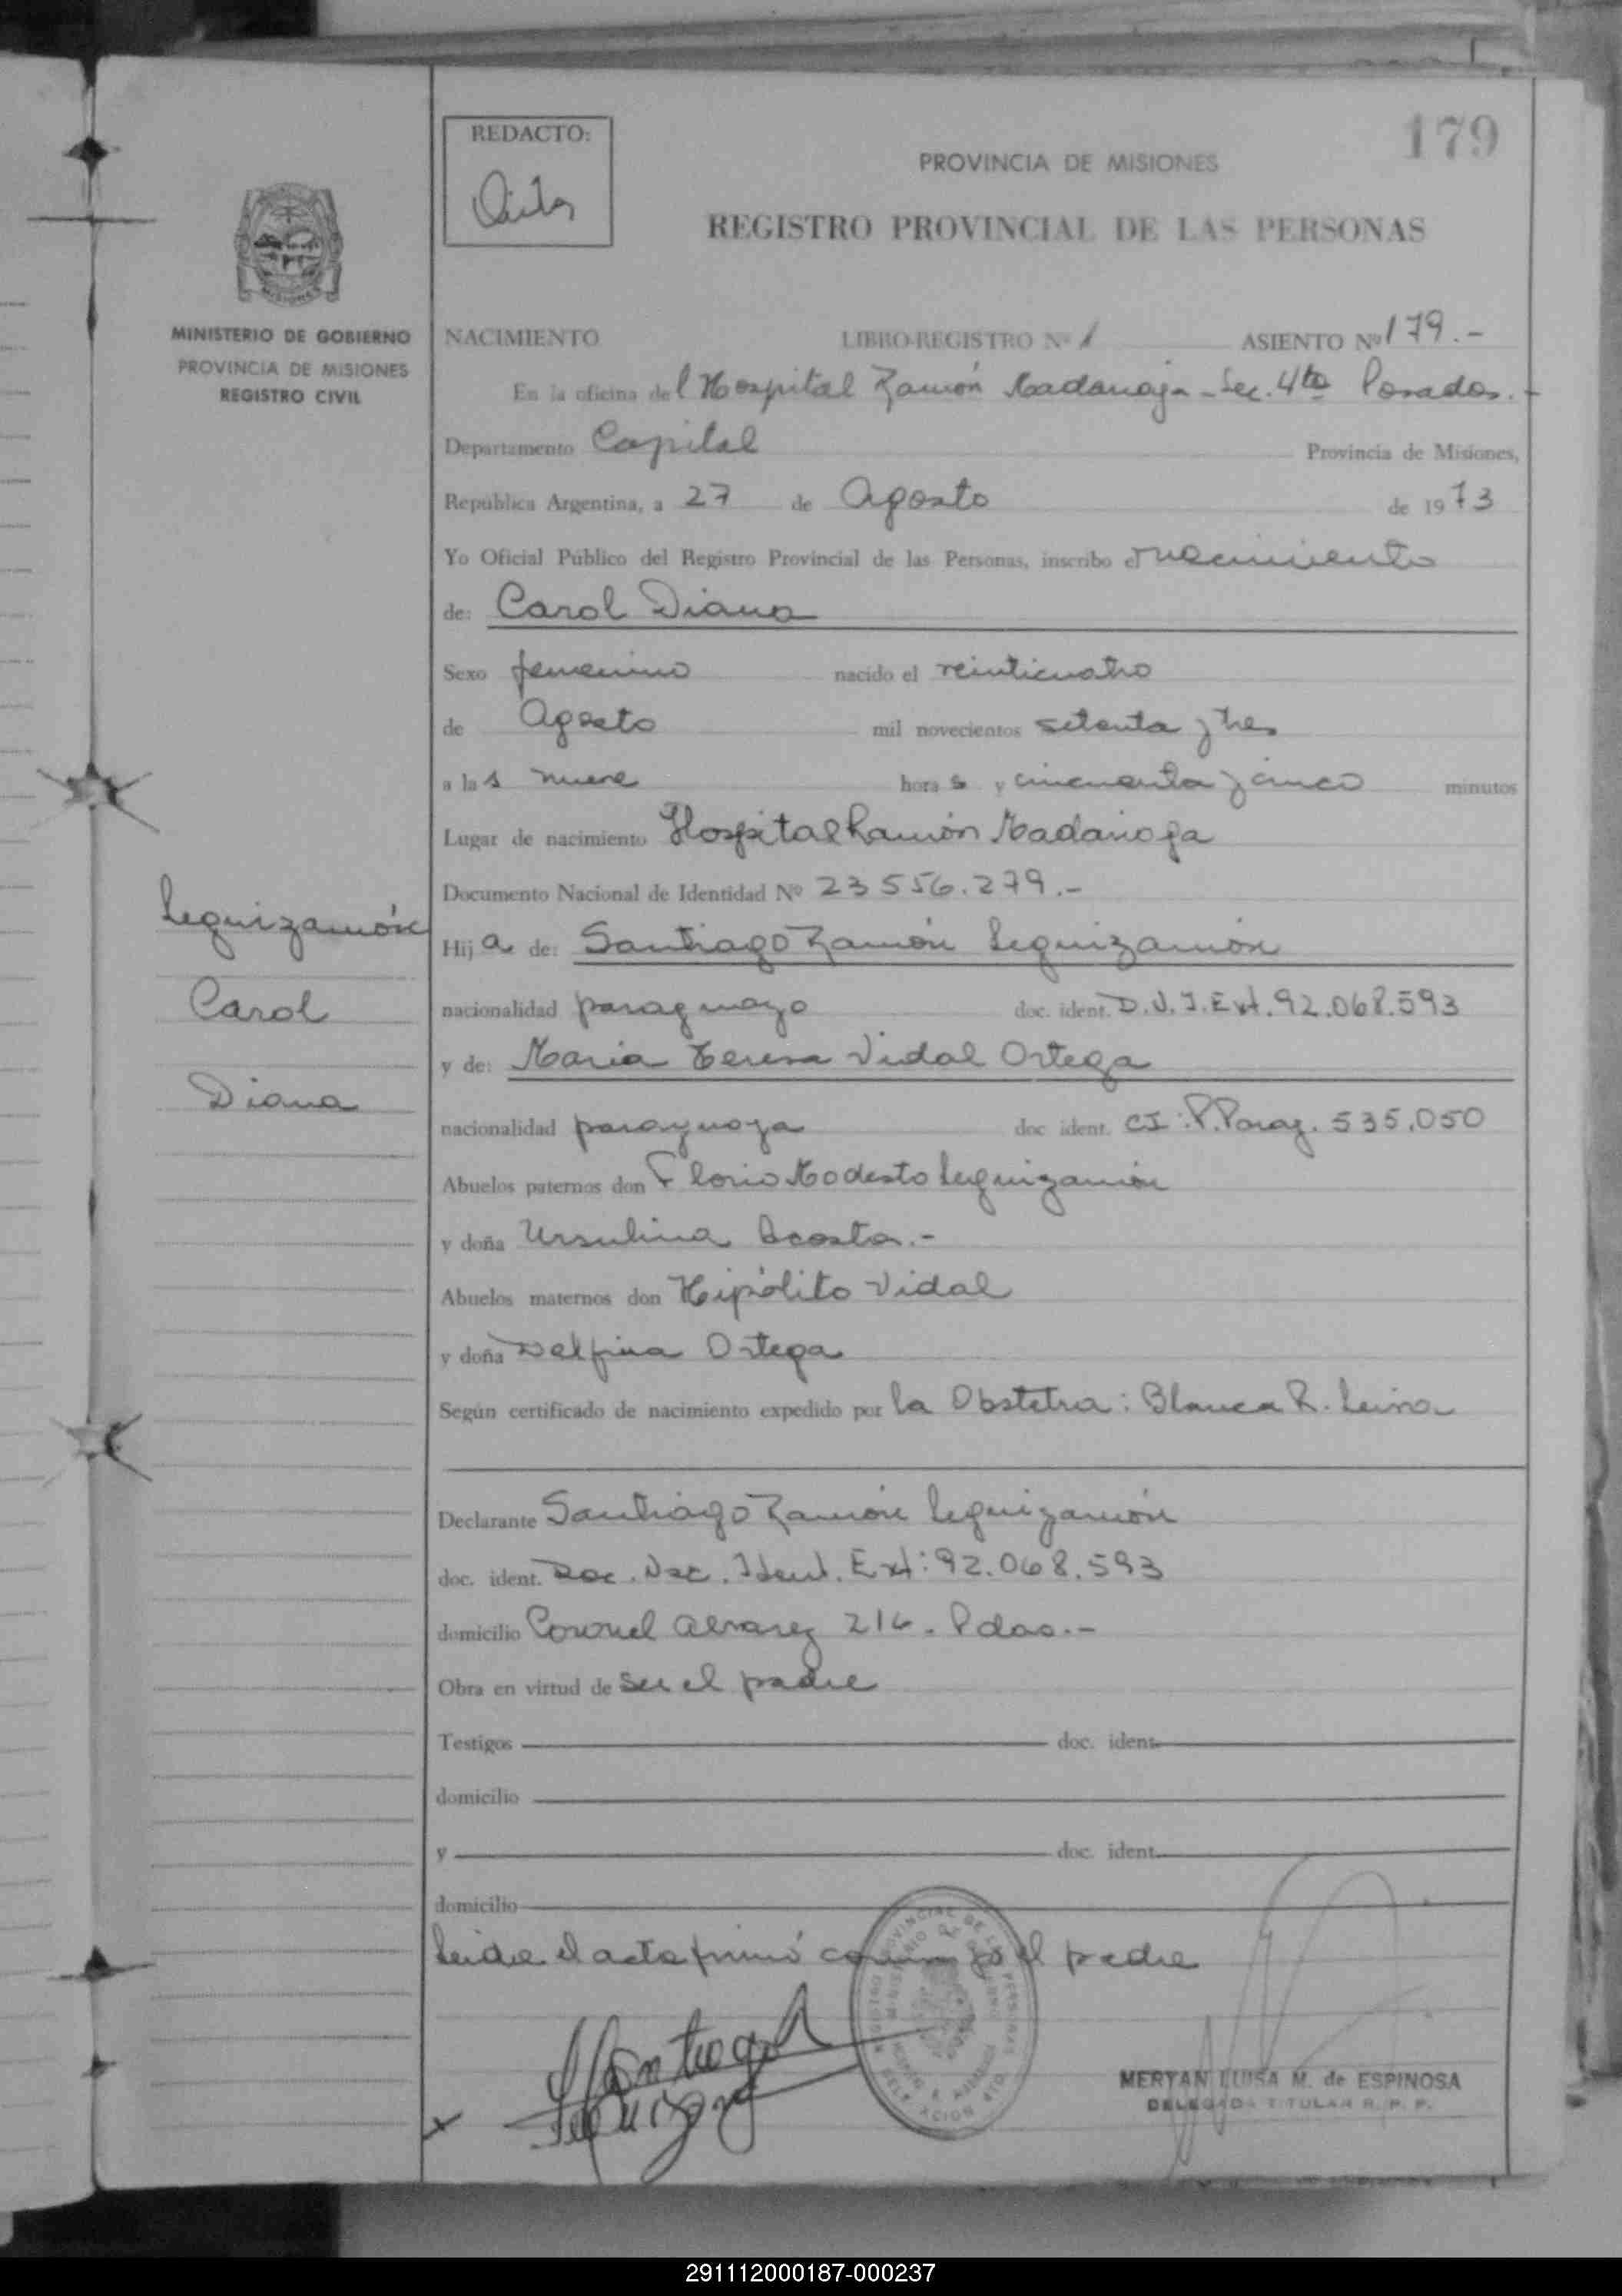 179
REDACTO:
PROVINCIA DE MISIONES
REGISTRO PROVINCIAL DE LAS PERSONAS
MINISTERIO DE GOBIERNO
PROVINCIA DE MISIONES
REGISTRO CIVIL
NACIMIENTO LIBRO-REGISTRO Nº 1 ASIENTO Nº 179.-
En la oficina del Hospital Ramón Madariaga - Sec. 4to Posadas.-
Departamento Capital Provincia de Misiones,
República Argentina, a 27 de Agosto de 1973
Yo Oficial Público del Registro Provincial de las Personas, inscribo el nacimiento
de: Carol Diana
Sexo femenino nacido el veinticuatro
de Agosto mil novecientos setenta y tres
a las nueve horas y cincuenta y cinco minutos
Lugar de nacimiento Hospital Ramón Madariaga
Documento Nacional de Identidad Nº 23556.279.-
Leguizamón
Carol
Diana
Hija de: Santiago Ramón Leguizamón
nacionalidad paraguayo doc. ident. D.N.I. Ext. 92.068.593
y de: Maria Teresa Vidal Ortega
nacionalidad paraguaya doc ident. CI: P. Parag. 535.050
Abuelos paternos don Modesto Leguizamón
y doña Ursulina Acosta.-
Abuelos maternos don Hipólito Vidal
y doña Delfina Ortega
Según certificado de nacimiento expedido por la Obstetra: Blanca R.
Declarante Santiago Ramón Leguizamón
doc. ident. Doc. Nac. Ident. Ext: 92.068.593
domicilio Coronel Alvarez 216. Pdas.-
Obra en virtud de ser el padre
Testigos doc. ident.
domicilio
y doc. ident.
domicilio
Leida el acta firmó conmigo el padre
Santiago
Leguizamón
MERYAN LUISA M. de ESPINOSA
DELEGADA TITULAR R. P. P.
291112000187-000237